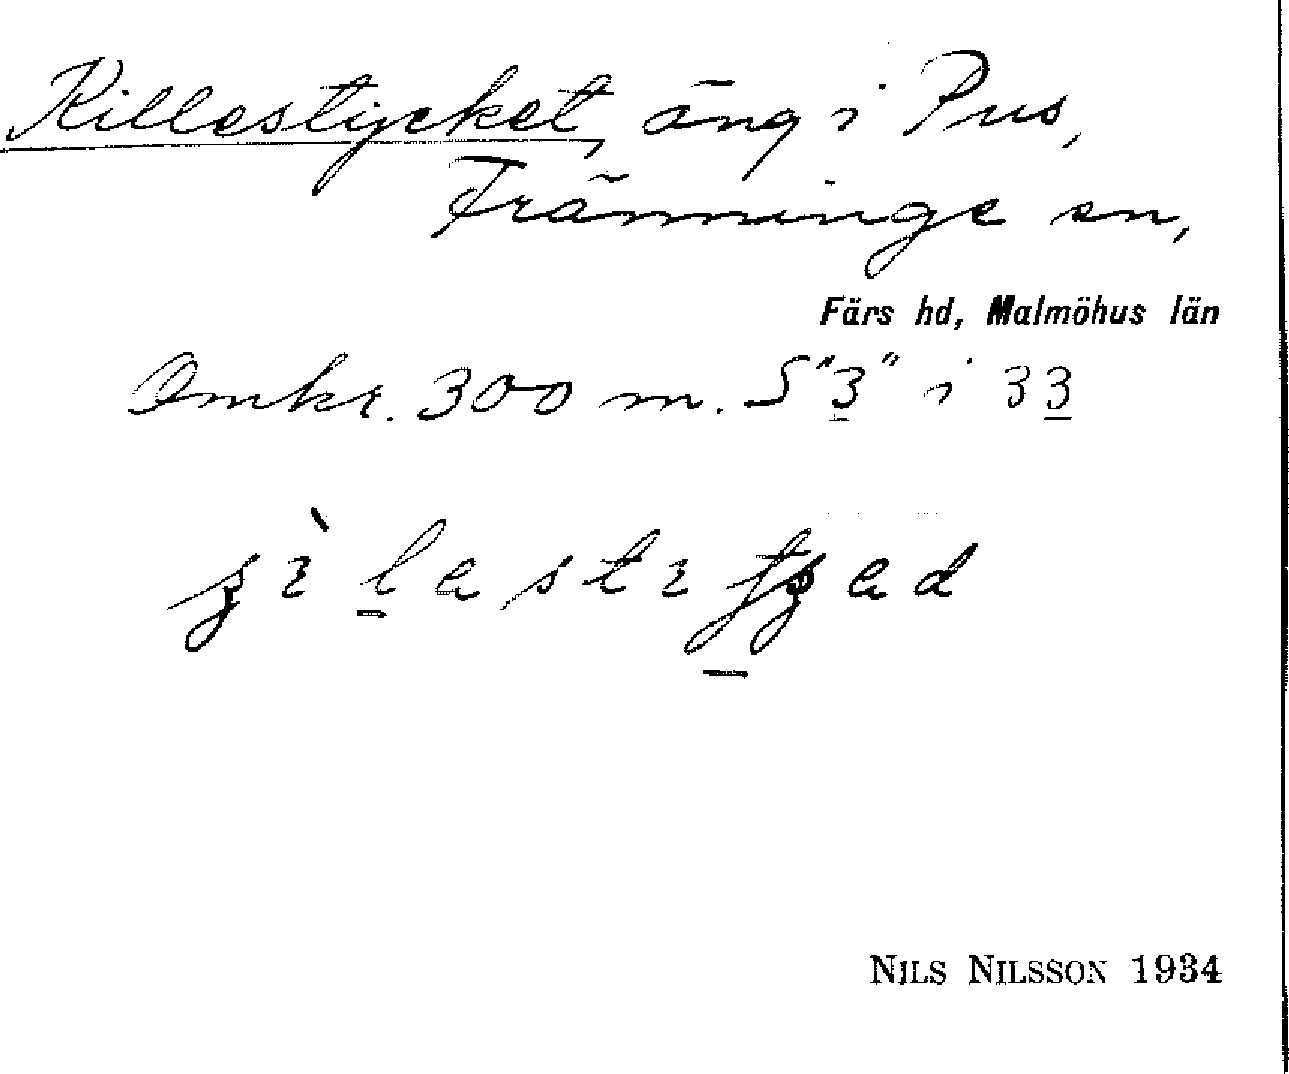 Killestycket, äng i Pus,
Fränninge sn,
Färs hd, Malmöhus län
Omkr. 300 m. S "3" i 33
NILS NILSSON 1934